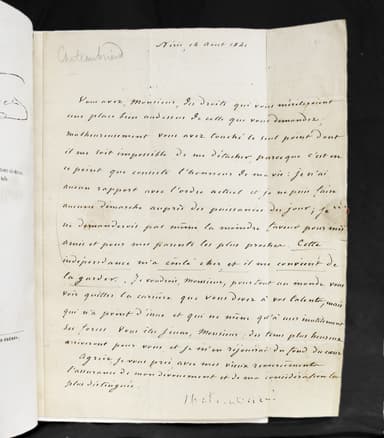 Chateaubriand
août 1841
Vous avez, Monsieur, des droits qui vous
une place bien au dessus de celle que vous demandez
malheureusement vous avez touché le seul point dont
il me soit impossible de me détacher parceque c'est en
ce point que consiste l'honneur de ma vie: je n'ai
aucun rapport avec l'ordre actuel et je ne puis faire
aucune démarche auprès des puissances du jour; je
ne demanderois pas même la moindre faveur pour mes
amis et pour mes parents les plus proches. Cette
indépendance m'a coûté cher et il me convient de
la garder. Je voudrois, monsieur, pour tout au monde vous
voir quitter la carrière que vous devez à vos talents, mais
qui n'a point d'issue et qui ne mène qu'à user inutilement
des forces. Vous êtes jeune, Monsieur, des tems plus heureux
arriveront pour vous et je m'en réjouirai du fond du cœur
Agréez je vous prie avec mes vieux
l'assurance de mon dévouement et de ma considération la
plus distinguée